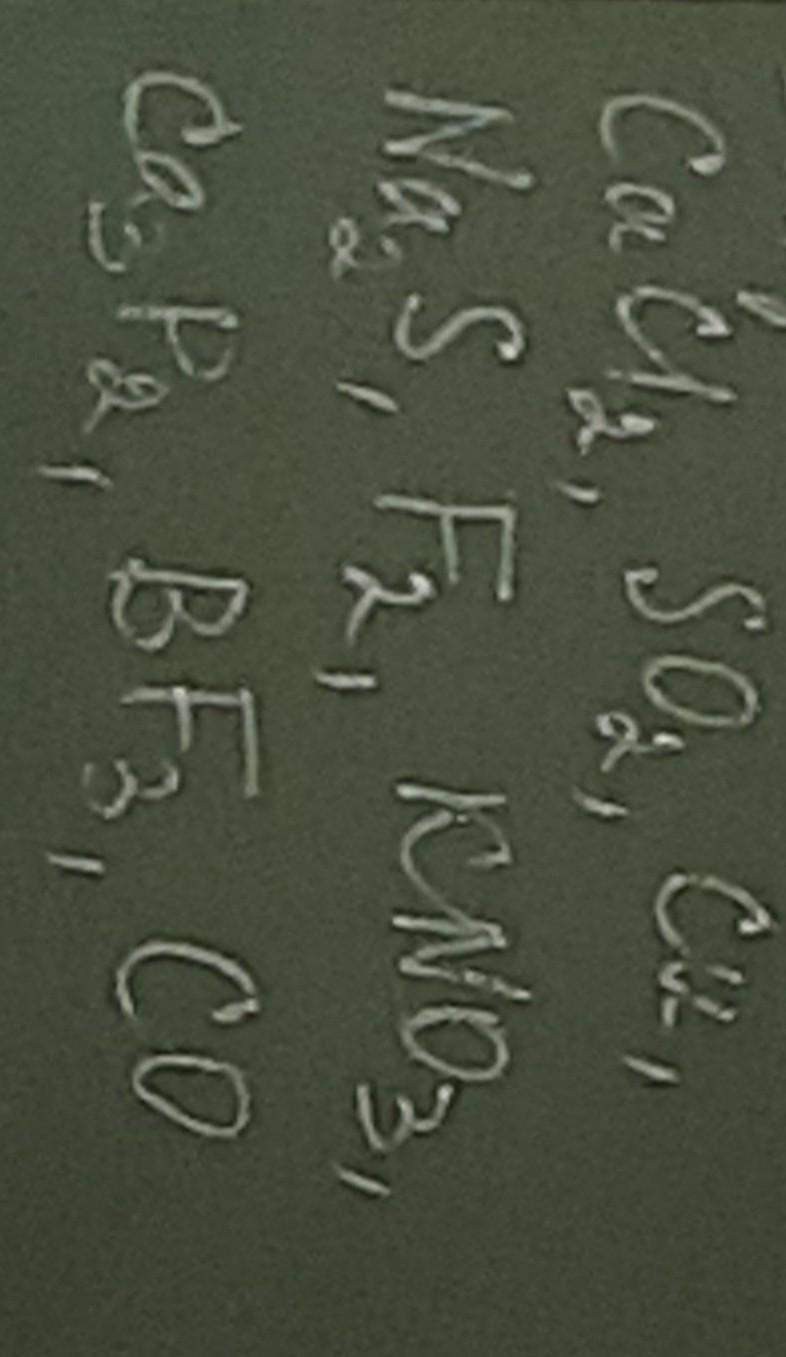 CaCl2, SO2, Cu,
Na2S, F2, KNO3,
Ca3P2, BF3, CO